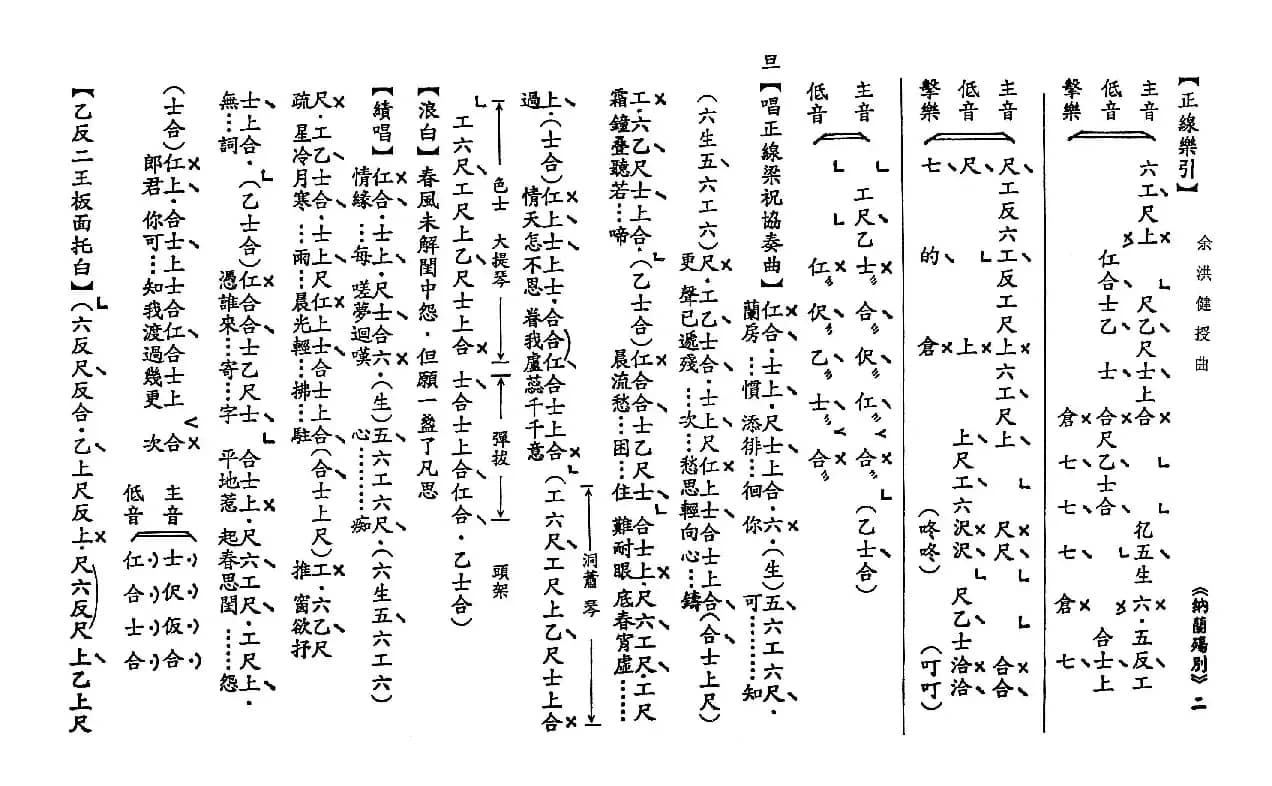 【正線樂引】 余洪健授曲 《納蘭殤別》二
主音 六工尺上 尺乙尺士上合 仡五生六·五反工
低音 仜合士乙士合尺乙士合 合士上
擊樂 倉七七七倉七
主音 尺工反六工反工尺上六工尺上 尺尺 合合
低音 尺 上 上尺工六沢沢 尺乙士洽洽
擊樂 七 的 倉 (咚咚) (叮叮)
主音 工尺乙士合伬仜合 (乙士合)
低音 仜伬乙士合
旦【唱正線梁祝協奏曲】仜合·士上·尺士上合·六·(生)五六工六尺·
蘭房⋯⋯慣 添徘⋯徊 你 可⋯⋯⋯知
(六生五六工六)尺·工乙士合·士上尺仜上士合士上合(合士上尺)
更 聲已遞殘⋯次⋯愁思輕向心⋯鑄
工·六乙尺士上合·(乙士合)仜合合士乙尺士 合士上·尺六工尺·工尺
霜 鐘疊聽若⋯啼 晨流愁⋯⋯困⋯住 難耐眼 底春宵虛⋯⋯
上·(士合)仜上士上士·合合仜合士上合 (工六尺工尺上乙尺士上合
過 情天怎不恩 眷我盧蕊千千意 洞簫 琴
色士 大提琴 彈拔 頭架
工六尺工尺上乙尺士上合 士合士上合仜合·乙士合)
【浪白】春風未解閨中怨·但願一盞了凡思
【續唱】仜合·士上·尺士合六·(生)五六工六尺·(六生五六工六)
情緣⋯每 嗟夢迴嘆 心⋯⋯⋯痴
尺·工乙士合·士上尺仜上士合士上合(合士上尺)工·六乙尺
疏 星冷月寒⋯雨⋯晨光輕⋯拂⋯駐 推 窗欲抒
士上合·(乙士合)仜合合士乙尺士 合士上·尺六工尺·工尺上·
無⋯詞 憑誰來⋯寄⋯字 平地惹 起春思閨⋯⋯怨
(士合)仜上·合士上士合仜合士上 合
郎君 你可⋯知我渡過幾更 次
主音 士伬仮合
低音 仜合士合
【乙反二王板面托白】(六反尺反合·乙上尺反上·尺六反尺上乙上尺